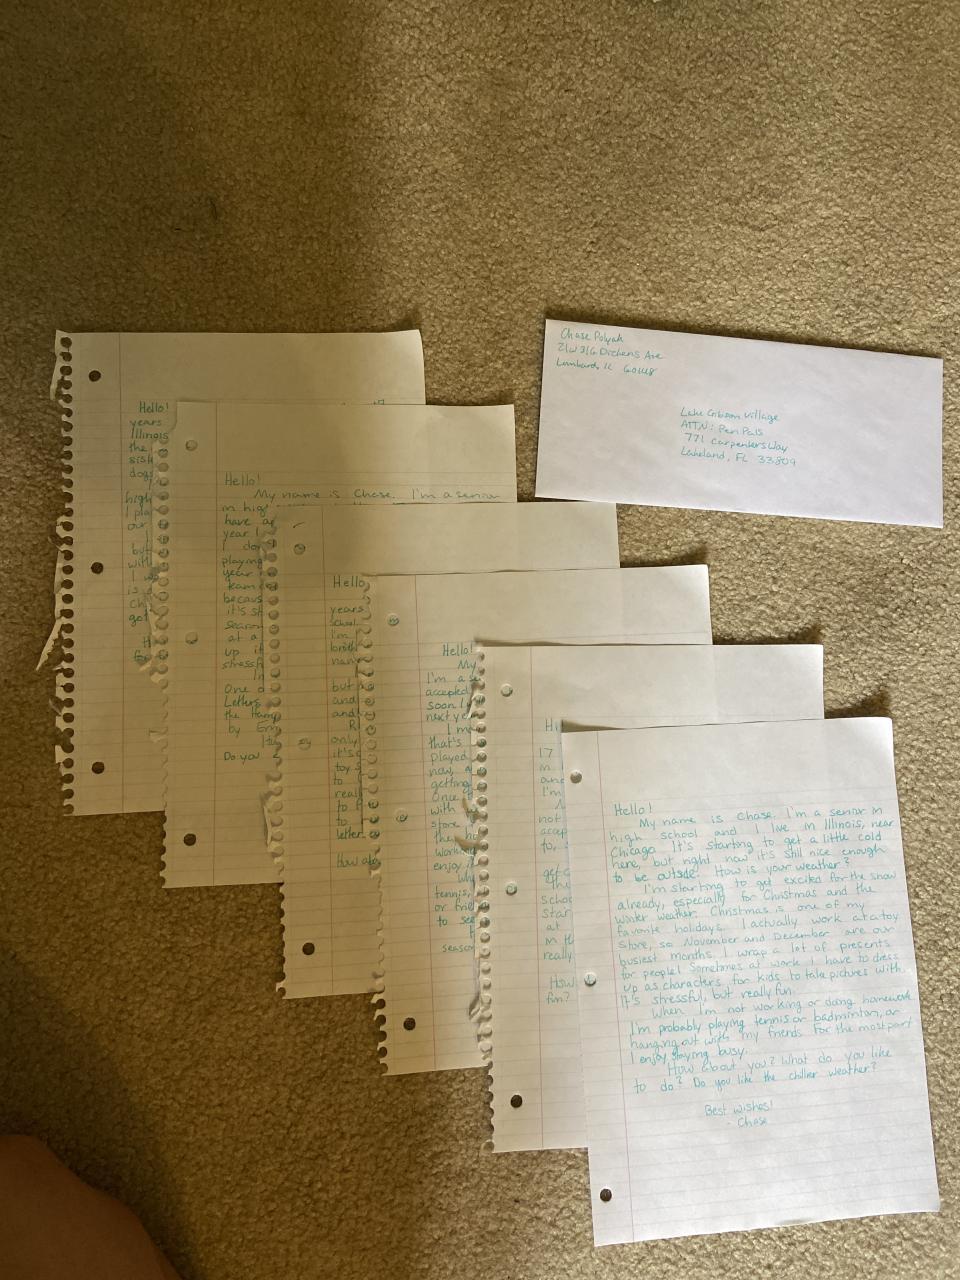 Chase Polyak
21W316 Dickens Ave
Lombard, IL 60148
Lake Gibson Village
ATTN: Pen Pals
771 Carpenters Way
Lakeland, FL 33809
Hello!
years
Illinois
the
dogs
high
I pla
our
but
with
I w
is a
ch
got
Hello!
My name is Chase. I'm a senior
in hig
have
year I
I don
playing
year
team
becaus
it's st
season
at a
up if
stressf
In
One o
Letters
the Ham
by Em
Do you
Hello
years
school.
I'm
broth
nam
but
and
and
R
only
it's
toy s
to
reall
to
to
letter
How
Hello!
My
I'm a s
accepted
soon
next ye
I m
that's
played
now, a
getting
Once
with
store
the ho
work
enjoy
Wh
tennis,
or frie
to see
season
Hi
17
in
and
I'm
not
accep
to,
get
the
schoo
star
at
in th
really
How
fun?
Hello!
My name is Chase. I'm a senior in
high school and I live in Illinois, near
Chicago. It's starting to get a little cold
here, but right now it's still nice enough
to be outside. How is your weather?
I'm starting to get excited for the snow
already, especially for Christmas and the
winter weather. Christmas is one of my
favorite holidays. I actually work at a toy
store, so November and December are our
busiest months. I wrap a lot of presents
for people! Sometimes at work I have to dress
up as characters for kids to take pictures with.
It's stressful, but really fun.
When I'm not working or doing homework
I'm probably playing tennis or badminton, or
hanging out with my friends. For the most part
I enjoy staying busy.
How about you? What do you like
to do? Do you like the chillier weather?
Best wishes!
- Chase